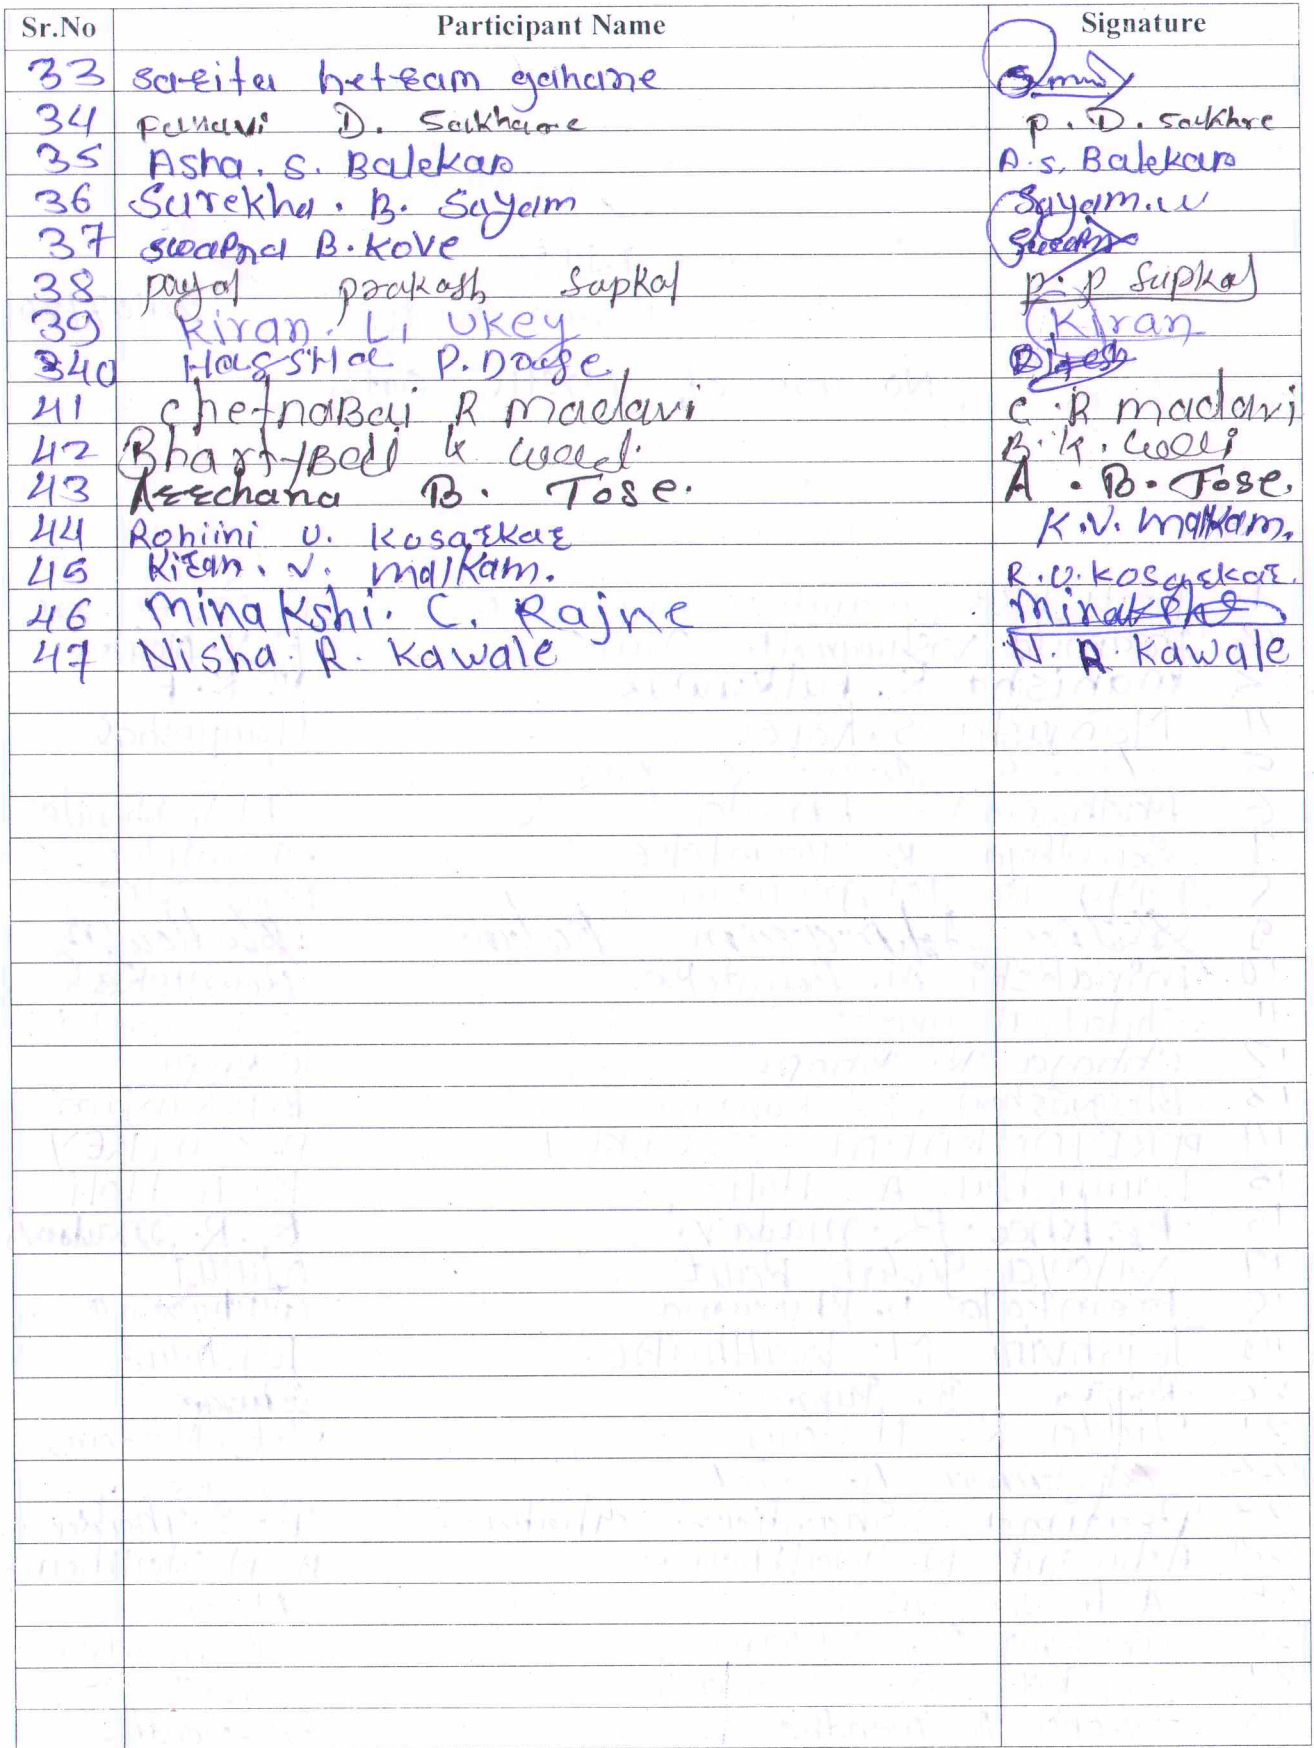 Sr.No Participant Name Signature
33 sarita hetram gahane
34 D. Sakhare P. D. Sakhre
35 Asha. S. Balekar A. S. Balekar
36 Surekha. B. Sayam Sayam.
37 swapna B. Kove
38 payal prakash Sapkal P. P Sapkal
39 Kiran. L. Ukey Kiran
40 P. Doage
41 ChetnaBai R Madavi C. R Madavi
42 K B. K.
43 Archana B. Tose. A. B. Tose.
44 Rohiini U. Kosarkar K. V. Malkam.
45 Kiran. V. Malkam. R. U. Kosarkar.
46 Minakshi. C. Rajne Minakshi
47 Nisha. R. Kawale N. R. Kawale